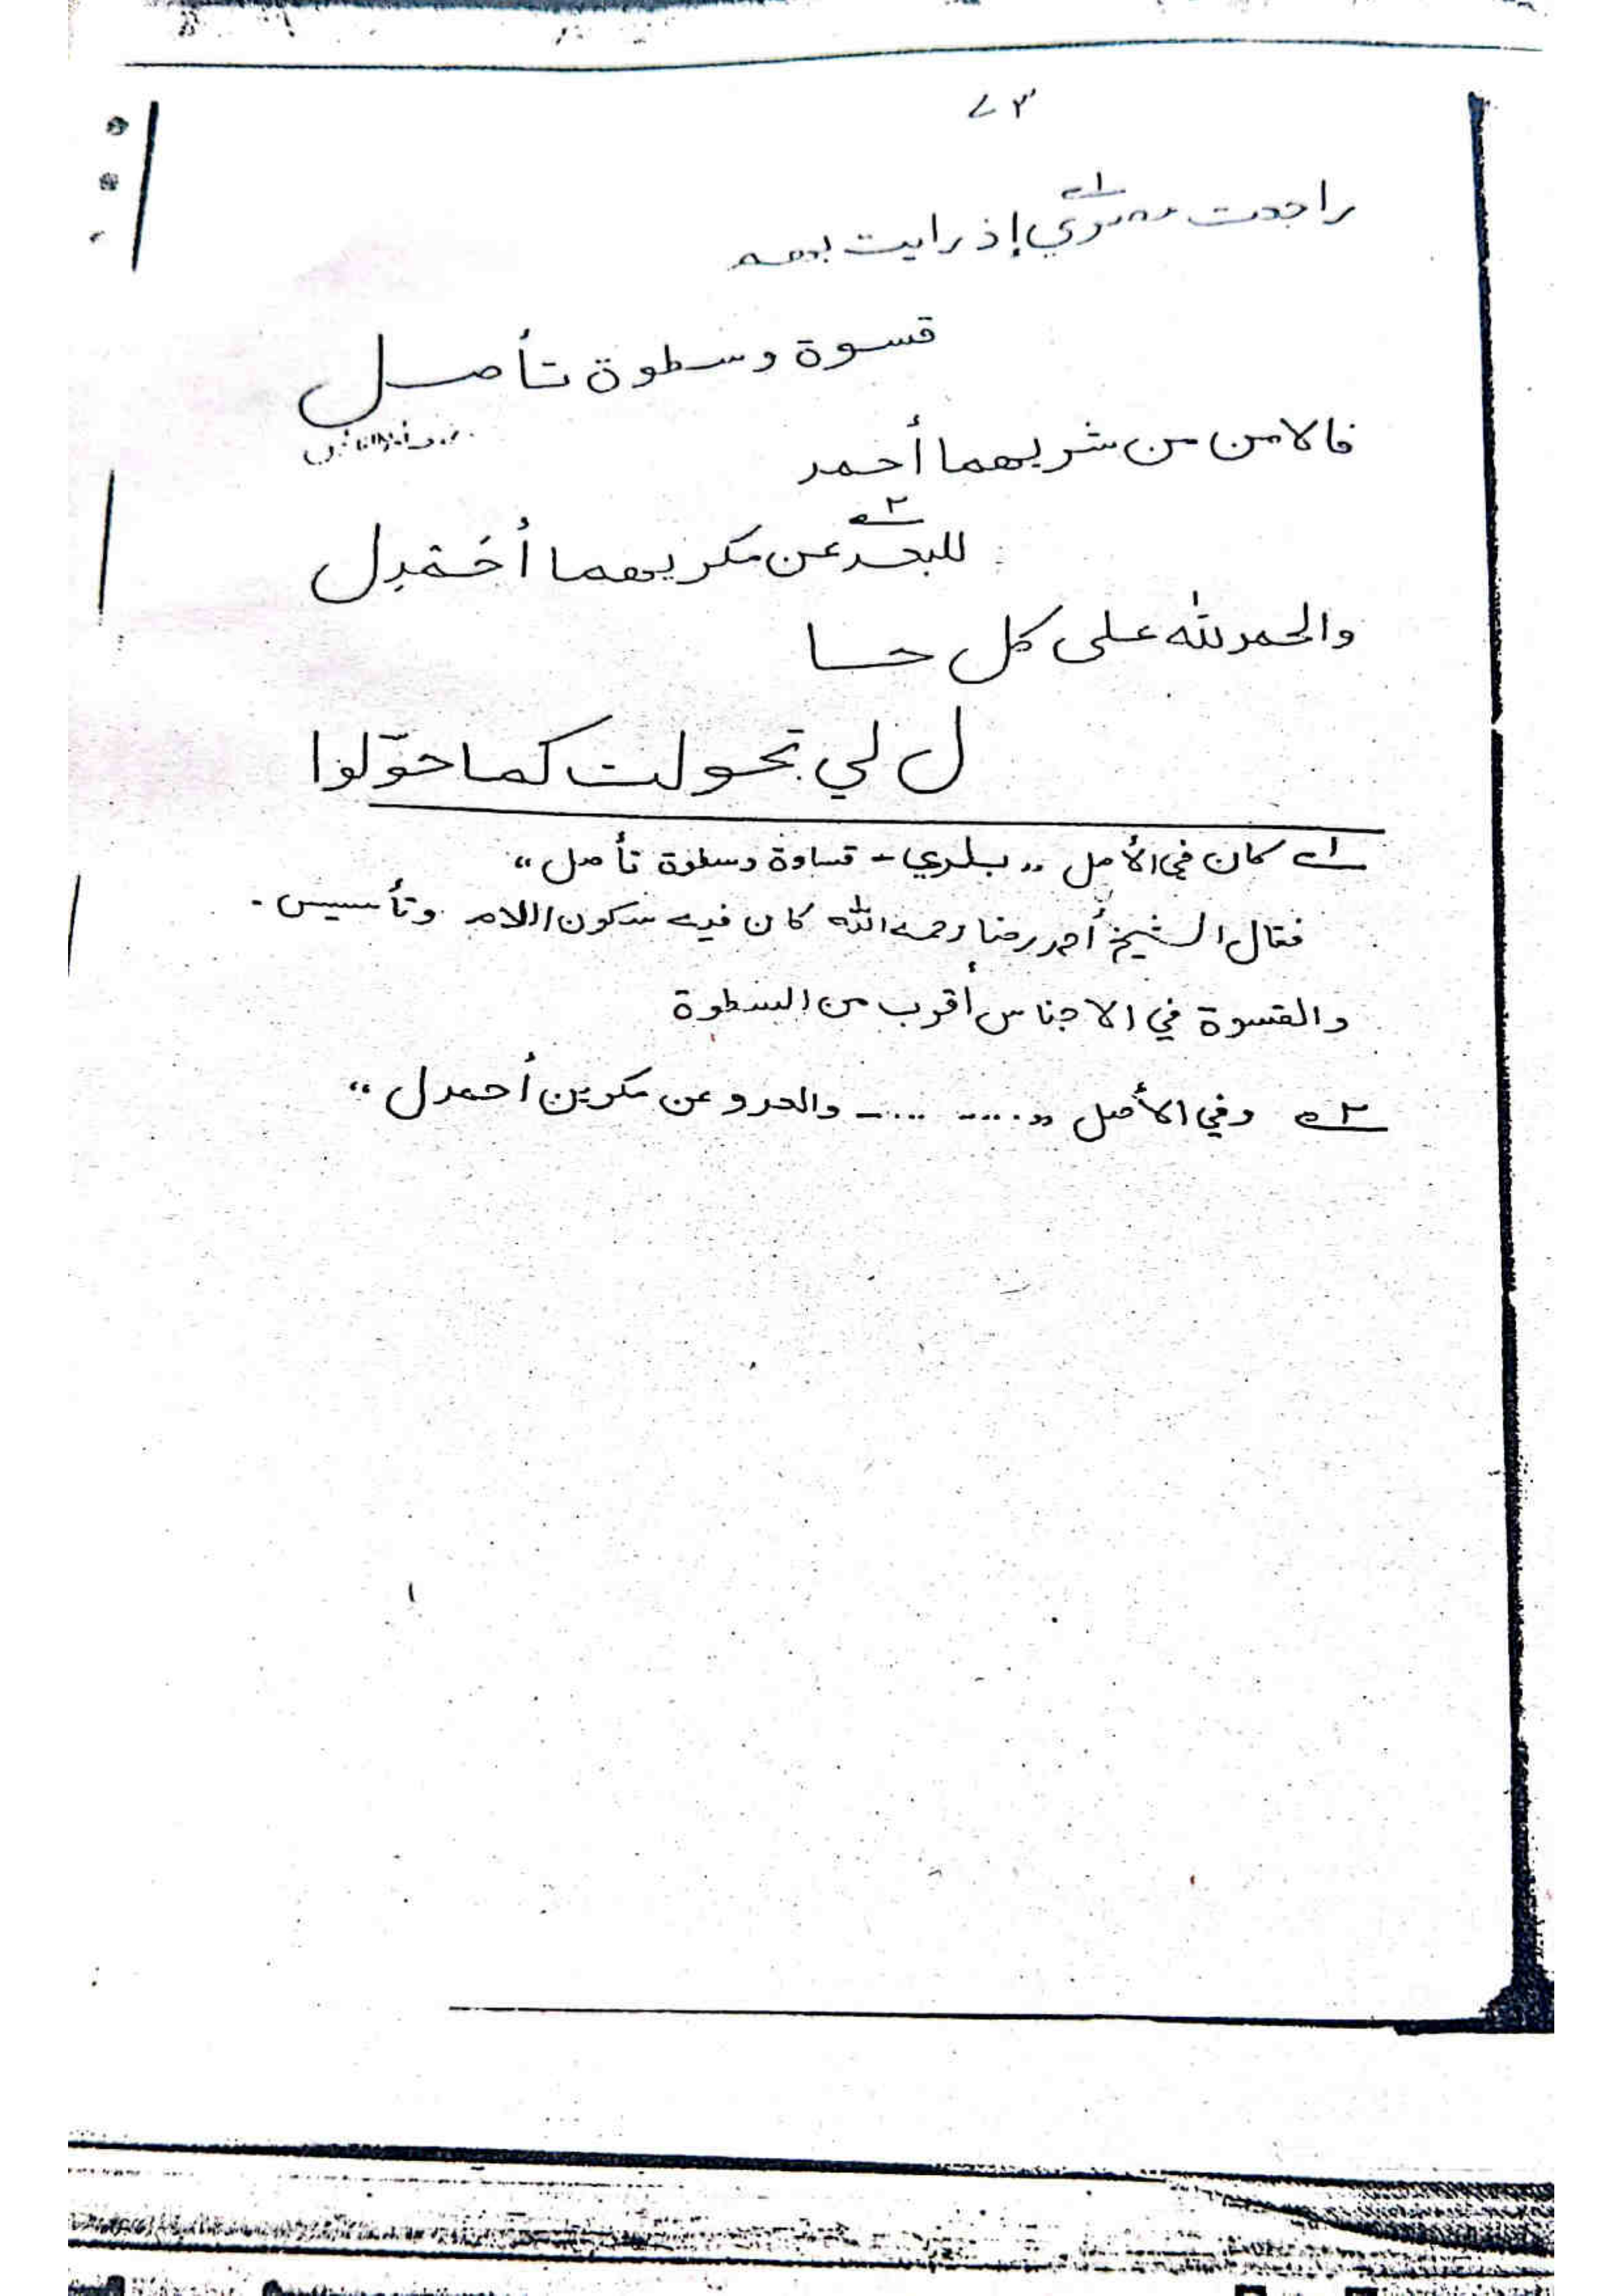 ٧٣
راجعت إذ رايت بهم
قسوة وسطوة تأصل
فالامن من شريهما أحمد
للبعد عن مكريهما أختدل
والحمد لله على كل حسا
ل لي تحولت كما حوّلوا
١ كان في الأصل „ بلدي - قساوة وسطوة تأصل “
فقال الشيخ أحمد رضا رحمه الله كان فيه سكون اللام وتأسيس .
والقسوة في الاجناس أقرب من السطوة
٢ وفي الأصل „ .... .... - والحدو عن مكرين أحمدل “